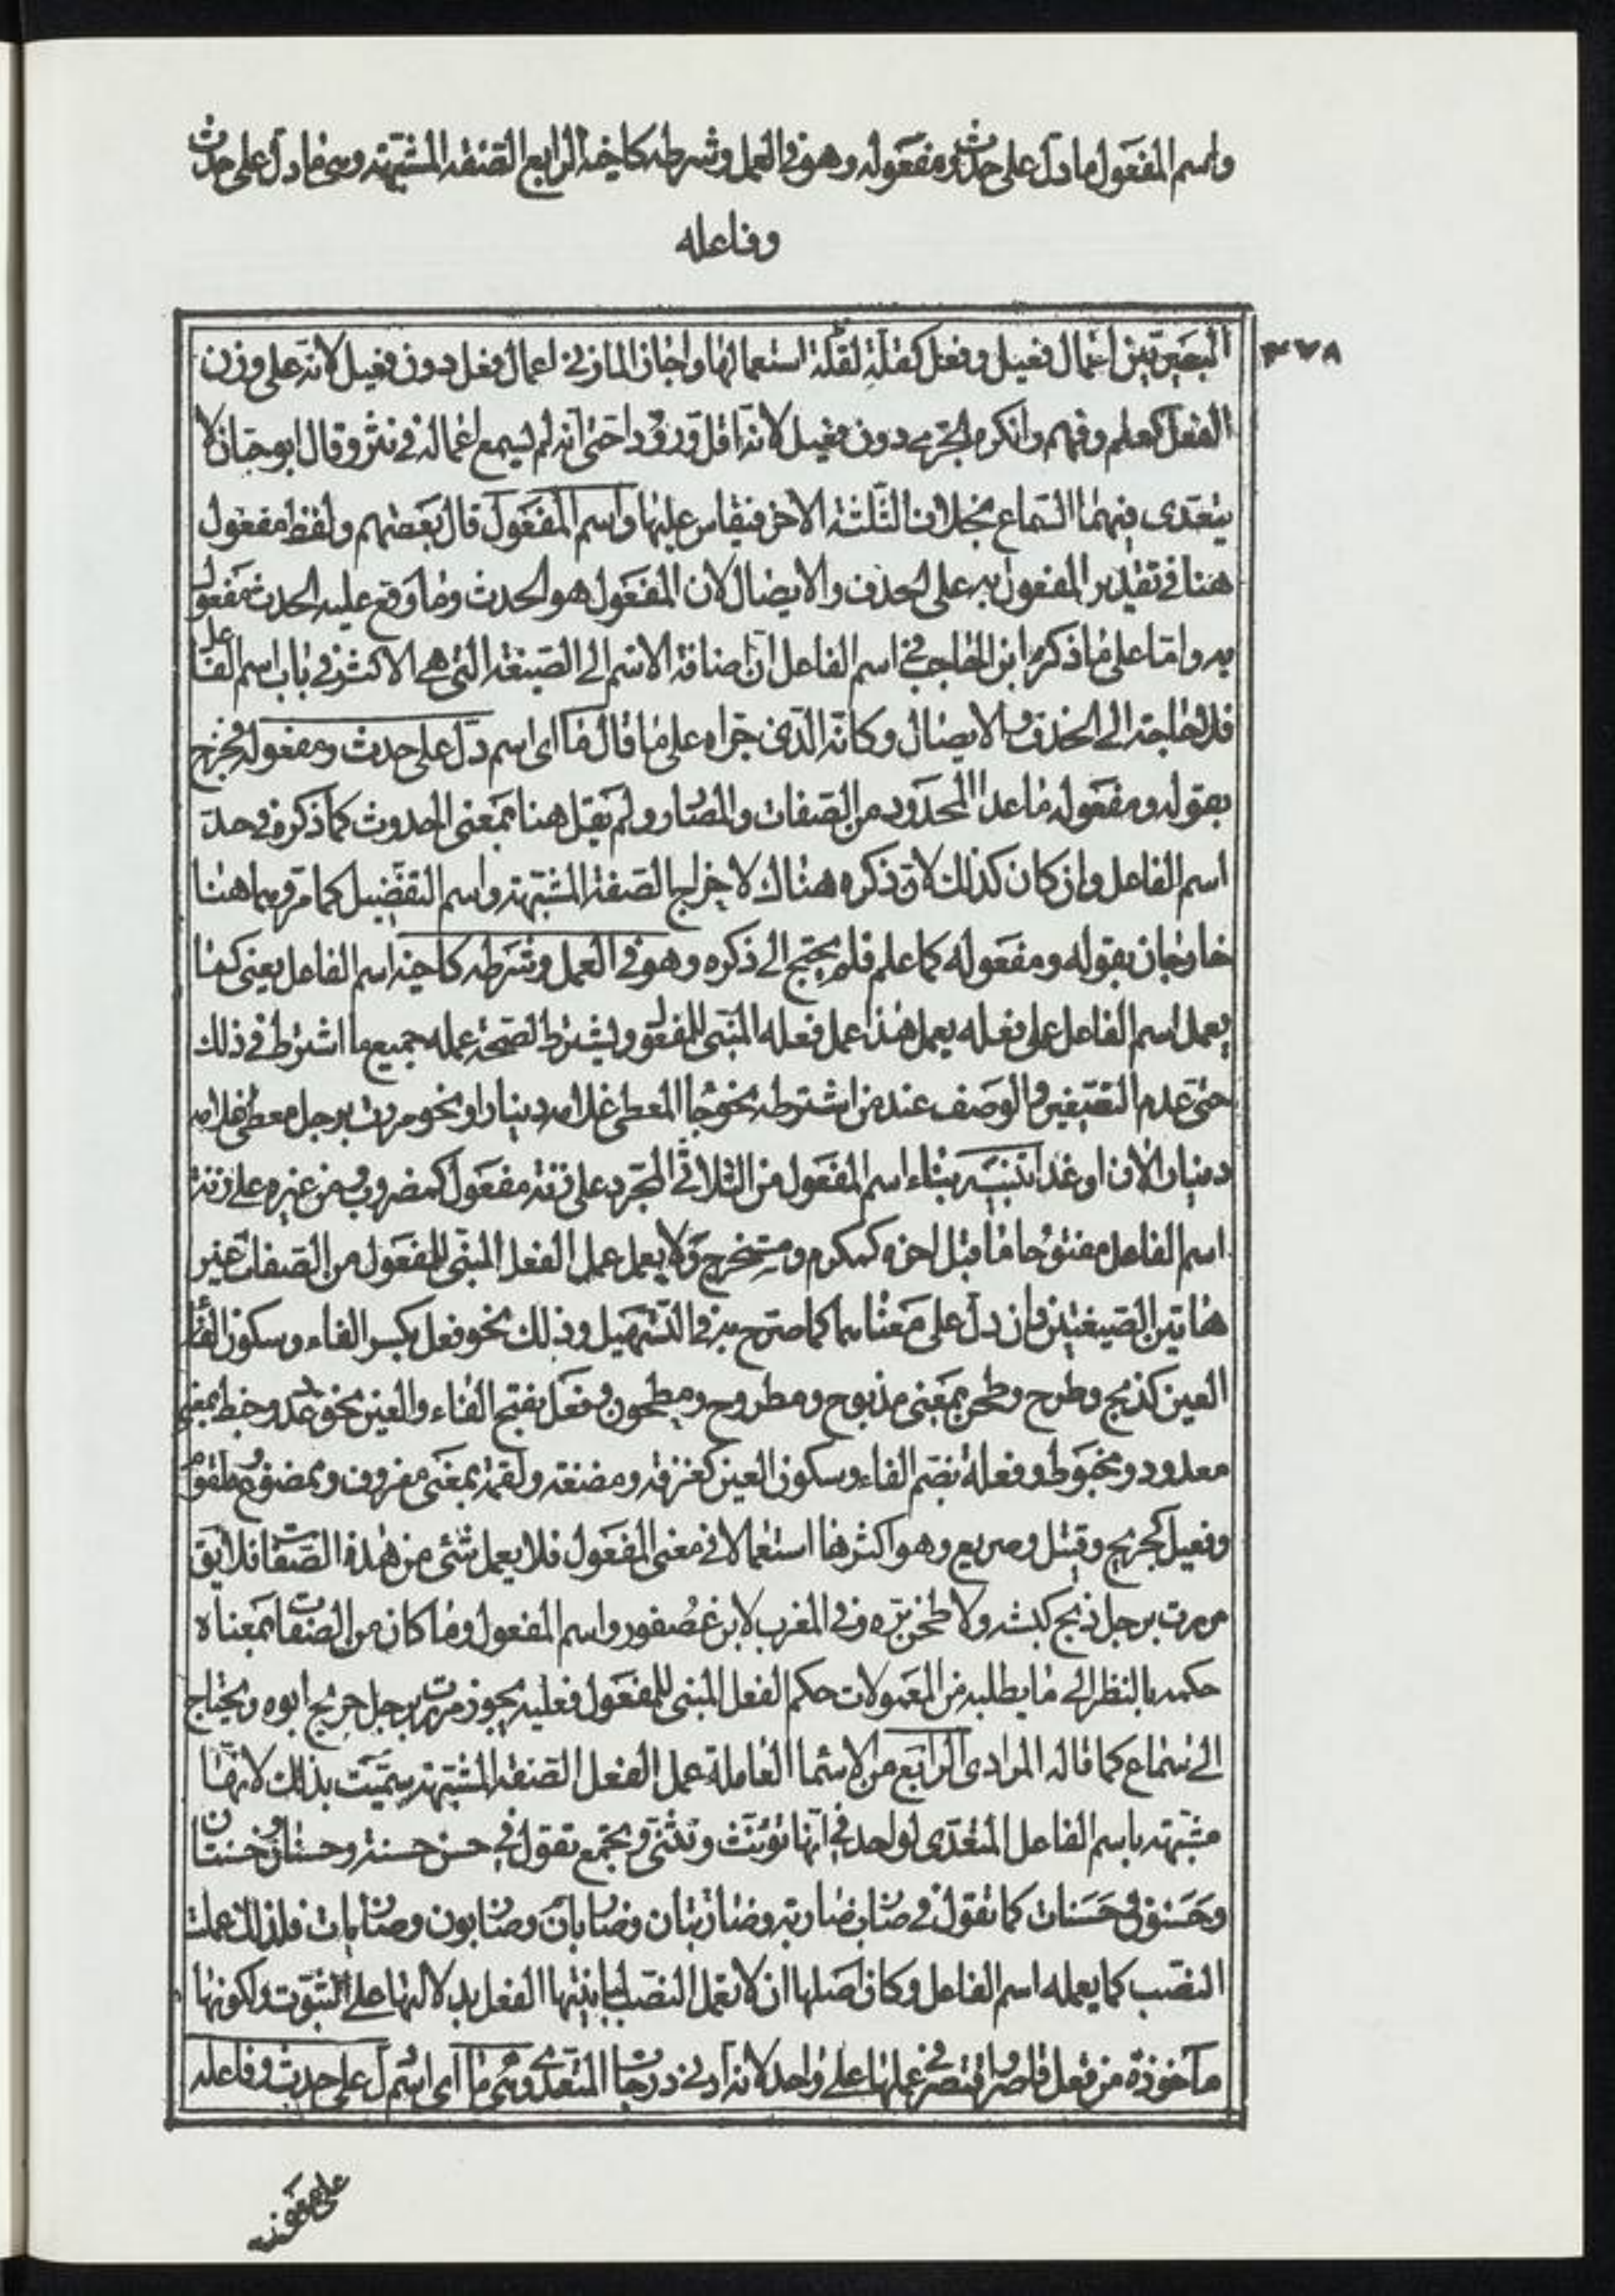 واسم المفعول ما دل على حدث ومفعوله وهو في العمل وشرطه كاخيه الرابع الصفة المشبهة وهي ما دل على حدث
وفاعله
٣٧٨
البصريين اعمال فعيل وفعل كفلة لقلة استعمالها واجاز المازني اعمال فعل دون فعيل لانه على وزن
الفعل كعلم وفهم وانكره الجرمي دون فعيل لانه اقل ورودا حتى انه لم يسمع اعماله في نثر وقال ابو حيان لا
يتعدى فيهما السماع بخلاف الثلثة الاخر فيقاس عليها واسم المفعول قال بعضهم ولفظ مفعول
هنا في تقدير المفعول به على الحذف والايصال لان المفعول هو الحدث وما وقع عليه الحدث مفعول
به واما على ما ذكره ابن الحاجب في اسم الفاعل ان اضافة الاسم الى الصيغة التي هي الاكثر في باب اسم الفاعل
فلا حاجة الى الحذف والايصال وكانه الذي جراه على ما قال ما اى اسم دل على حدث ومفعوله فخرج
بقوله ومفعوله ما عدا المحدود من الصفات والمصادر ولم يقل هنا بمعنى الحدوث كما ذكره في حد
اسم الفاعل وان كان كذلك لان ذكره هناك لاخراج الصفة المشبهة واسم التفضيل كما مر وهما هنا
خارجان بقوله ومفعوله كما علم فلم يحتج الى ذكره وهو في العمل وشرطه كاخيه اسم الفاعل يعنى كما
يعمل اسم الفاعل عمل فعله يعمل هذا عمل فعله المبنى للمفعول ويشترط لصحة عمله جميع ما اشترط في ذلك
حتى عدم التصغير والوصف عند من اشترطه نحو جا المعطى غلامه دينارا ونحو مررت برجل معطى غلامه
دينارا الان او غدا تنبيه بناء اسم المفعول من الثلاثي المجرد على زنة مفعول كمضروب ومن غيره على زنة
اسم الفاعل مفتوحا ما قبل اخره كمكرم ومستخرج ولا يعمل عمل الفعل المبنى للمفعول من الصفات غير
هاتين الصيغتين وان دل على معناهما كما صرح به في التسهيل وذلك نحو فعل بكسر الفاء وسكون
العين كذبح وطرح وطحن بمعنى مذبوح ومطروح ومطحون وفعل بفتح الفاء والعين نحو عدد وخبط بمعنى
معدود ومخبوط وفعلة بضم الفاء وسكون العين كغرفة ومضغة ولقمة بمعنى مغروف وممضوغ وملقوم
وفعيل كجريح وقتيل وصريع وهو اكثرها استعمالا في معنى المفعول فلا يعمل شئ من هذه الصفات فلا يق
مررت برجل ذبح كبشه ولا طحن بره وفي المغرب لابن عصفور واسم المفعول وما كان من الصفات بمعناه
حكمه بالنظر الى ما يطلبه من المعمولات حكم الفعل المبنى للمفعول فعليه يجوز مررت برجل جريح ابوه ويحتاج
الى سماع كما قاله المرادى الرابع من الاسما العاملة عمل الفعل الصفة المشبهة سميت بذلك لانها
مشبهة باسم الفاعل المتعدى لواحد في انها تؤنث وتثنى وتجمع تقول في حسن حسنة وحسنان وحسنتان
وحسنون وحسنات كما تقول في ضارب ضاربة وضاربتان وضاربان وضاربون وضاربات فلذلك عملت
النصب كما يعمله اسم الفاعل وكان اصلها ان لا تعمل النصب لمباينتها الفعل بدلالتها على الثبوت ولكونها
ماخوذة من فعل قاصر واقتصر في عملها على واحد لانه ادنى درجات المتعدى وهي ما اى اسم دل على حدث وفاعله